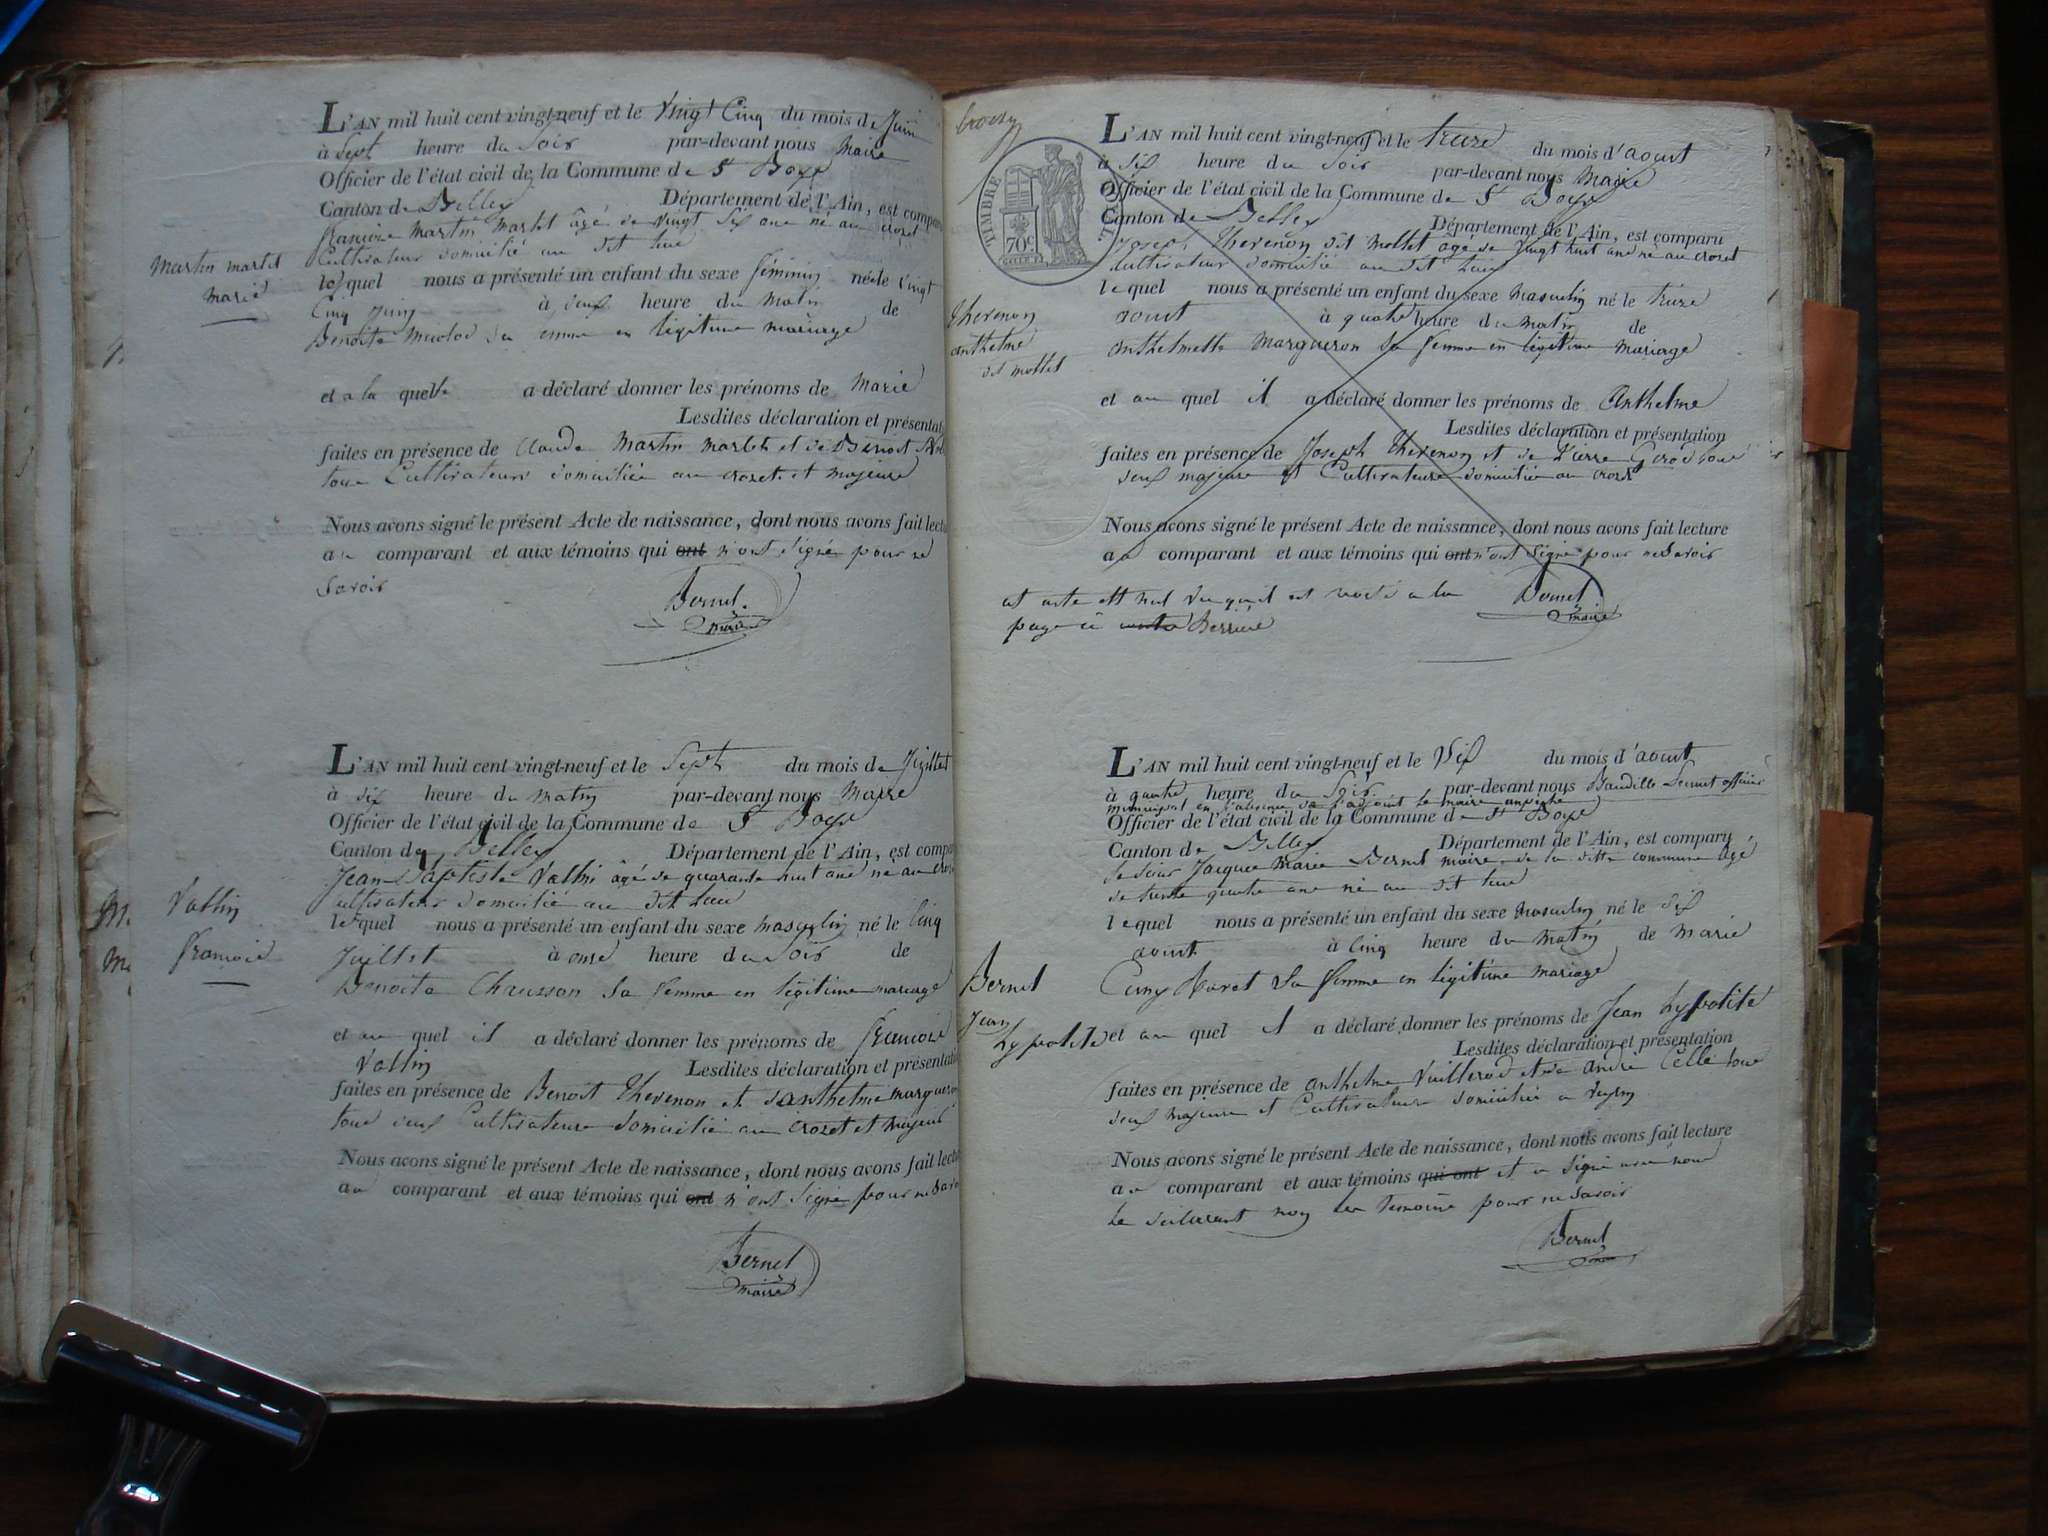 L'AN mil huit cent vingt-neuf et le vingt Cinq du mois de Juin
à Sept heure du Soir par-devant nous Maire
Officier de l'état civil de la Commune de St Boys
Canton de Belley Département de l'Ain, est compar
françois Martin Marlet âgé de vingt six ans né au crozet
Cultivateur domicilié au dit lieu
Martin marlet
marie
lequel nous a présenté un enfant du sexe féminin née le vingt
Cinq Juin à heure du Matin de
Benoite sa femme en légitime mariage
et a la quelle a déclaré donner les prénoms de Marie
Lesdites déclaration et présentat
faites en présence de Claude Martin Marlet et de Benoit
tous Cultivateurs domiciliés au crozet et majeurs
Nous avons signé le présent Acte de naissance, dont nous avons fait lectu
au comparant et aux témoins qui ont n'ont signé pour ne
Savoir
Bernel
maire
L'AN mil huit cent vingt-neuf et le Sept du mois de Juillet
à six heure du matin par-devant nous Maire
Officier de l'état civil de la Commune de St Boys
Canton de Belley Département de l'Ain, est compa
Jean Baptiste Vallin âgé de quarante huit ans né au croz
cultivateur domicilié au dit Lieu
Vallin
françois
lequel nous a présenté un enfant du sexe masculin né le Cinq
Juillet à onze heure du Soir de
Benoite Chausson Sa femme en légitime mariage
et au quel il a déclaré donner les prénoms de françois
Vallin Lesdites déclaration et présentati
faites en présence de Benoit Thevenon et d'anthelme margueron
tous deux Cultivateurs domicilié au crozet et majeurs
Nous avons signé le présent Acte de naissance, dont nous avons fait lect
au comparant et aux témoins qui ont n'ont signé pour ne Savoir
Bernel
maire
TIMBRE ROYAL
70c
L'AN mil huit cent vingt-neuf et le treize du mois d'aoust
à six heure du Soir par-devant nous Maire
Officier de l'état civil de la Commune de St Boys
Canton de Belley Département de l'Ain, est comparu
Joseph Thevenon dit Mollet âgé de vingt huit ans né au crozet
Cultivateur domicilié au dit Lieu
lequel nous a présenté un enfant du sexe Masculin né le treize
Thevenon
anthelme
dit mollet
aoust à quatre heure du Matin de
Anthelmette Margueron Sa femme en légitime Mariage
et au quel il a déclaré donner les prénoms de Anthelme
Lesdites déclaration et présentation
faites en présence de Joseph Thevenon et de Pierre tous
deux majeurs et Cultivateurs domiciliés au crozet
Nous avons signé le présent Acte de naissance, dont nous avons fait lecture
au comparant et aux témoins qui ont n'ont Signé pour ne Savoir
cet acte est nul vu qu'il est a la
page ci contre Derrière
Bernel
maire
L'AN mil huit cent vingt-neuf et le Dix du mois d'aoust
à quatre heure du Soir par-devant nous officier
municipal en l'absence de l'adjoint le maire
Officier de l'état civil de la Commune de St Boys
Canton de Belley Département de l'Ain, est comparu
le Sieur Jacques Marie Bernel maire de la ditte commune âgé
de trente quatre ans né au dit lieu
lequel nous a présenté un enfant du sexe Masculin né le dix
aoust à Cinq heure du Matin de Marie
Bernel
Jean
hypolite
Sa femme en légitime mariage
et au quel il a déclaré donner les prénoms de Jean hypolite
Lesdites déclaration et présentation
faites en présence de anthelme Vuillerod et de andré Celle tous
deux majeurs et Cultivateurs domiciliés a
Nous avons signé le présent Acte de naissance, dont nous avons fait lecture
au comparant et aux témoins qui ont et a signé avec nous
le déclarant non les témoins pour ne Savoir
Bernel